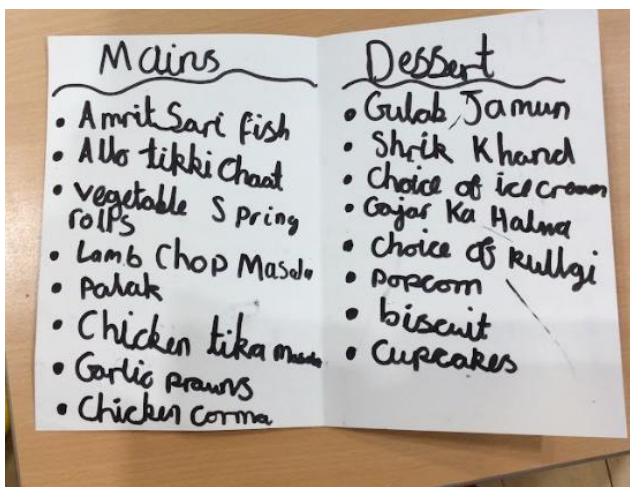 Mains
• Amrit Sari fish
• Allo tikki Chaat
• vegetable Spring
rolls
• Lamb Chop Masala
• palak
• Chicken tika Masala
• Garlic prawns
• Chicken corma
Dessert
• Gulab Jamun
• Shrik Khand
• Choice of ice cream
• Gajar Ka Halwa
• choice of kullgi
• popcorn
• biscuit
• cupcakes